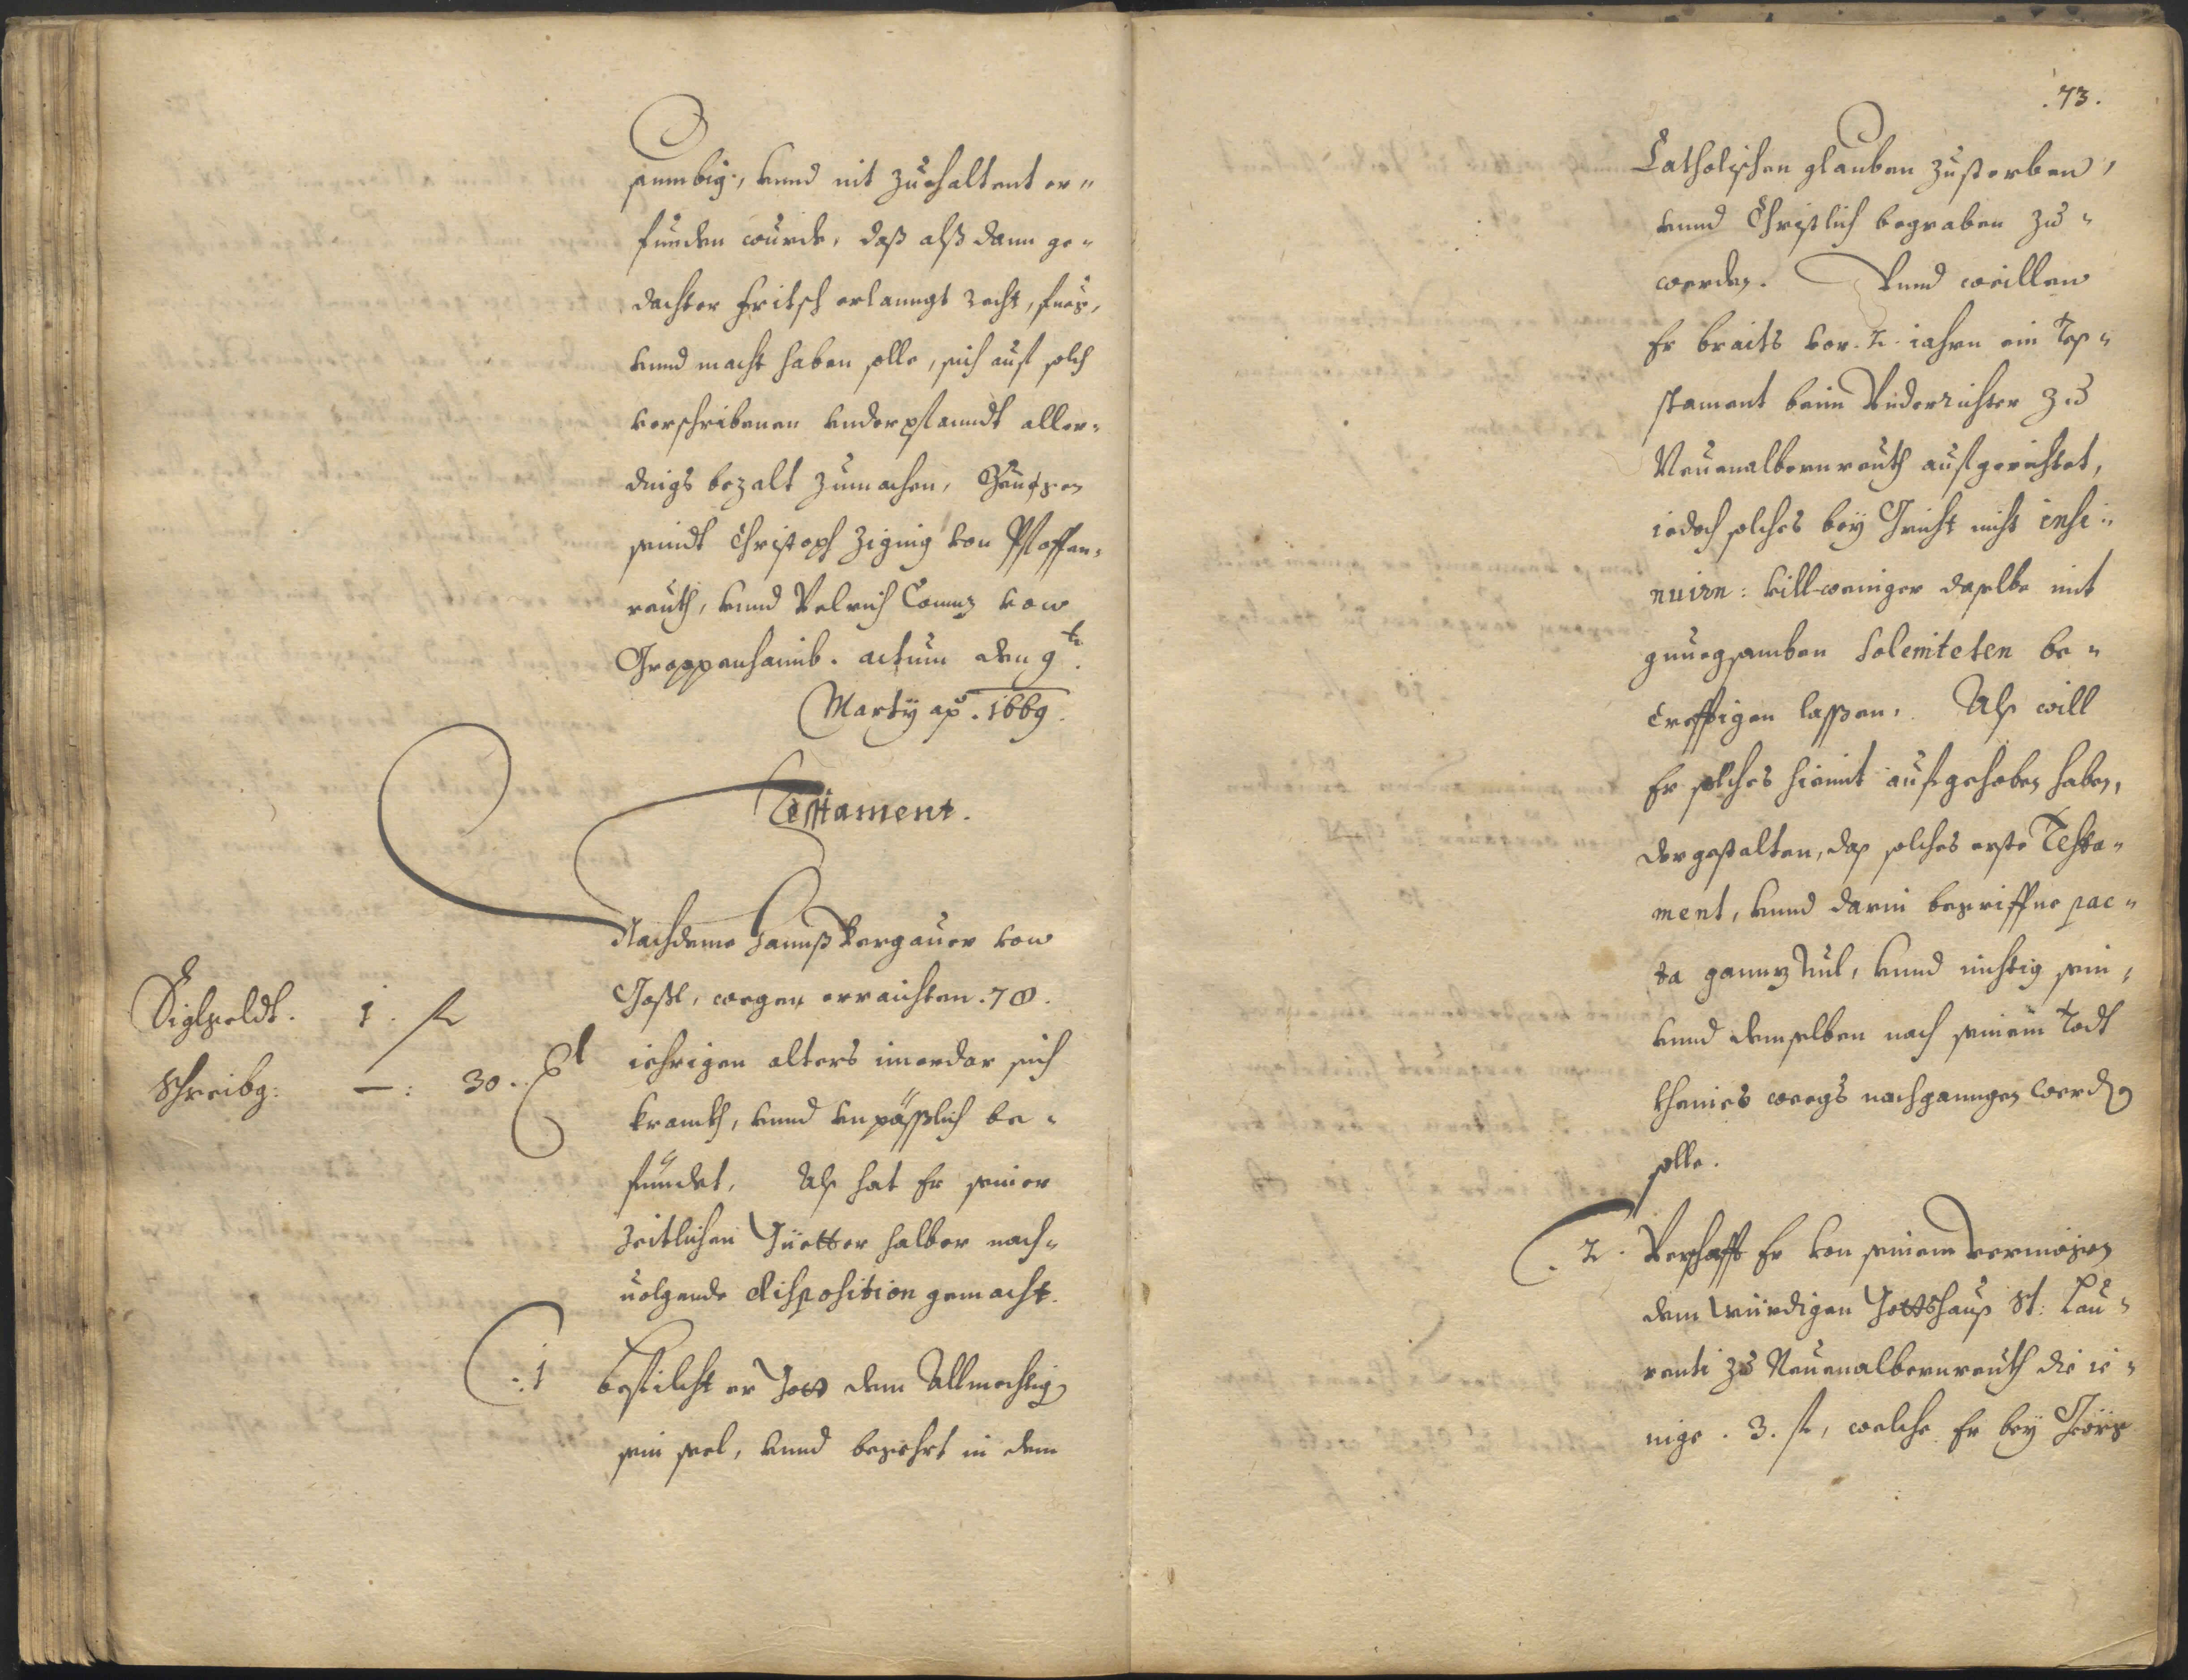 saumbig, vnnd nit zuehaltent er„
funden wurde, daß alß dann ge„
dachter Fritsch erlanngt recht, fueg,
vnnd macht haben solle, sich auß solch
verschribenen vnderpfanndt aller„
dings bezalt zumachen, Zeugen
seindt Christoph Ziging von Pfaffen„
reuth, vnnd Velrich Connz von
Groppenhaimb. actum den 9t.
Marty ao. 1669.
Testament.
Nachdeme Hannß Bergauer von
Goßl, wegen erraichten .70.
Siglgeldt. 1. fl
iehrigen alters imerdar sich
Schreibg: —: 30. Et
kranckh, vnnd vnpäßlich be„
fündet, Alß hat Er seiner
zeitlichen Güetter halber nach„
uolgende disposition gemacht.
.1 befilcht er Gott dem Allmechtigen
sein seel, vnnd begehrt in dem
.73.
Catholischen glauben zusterben,
vnnd Christlich begraben zu„
werden. Vnnd weillen
Er braits vor .2. iahrn ein Tes„
stament beim Vnderrichter zu
Neuenalbernreuth aufgerichtet,
iedoch solches bey Gricht nicht insi„
nuirn: vill weniger daselbe mit
gnuegsamben Solemiteten be„
crefftigen lassen, Alß will
Er solches hiemit aufgehoben haben,
dergestalten, daß solches erste Testa„
ment, vnnd darin begriffne pac„
ta ganntz Nul, vnnd nichtig sein,
vnnd demselben nach seinem Todt
kheines weegs nachganngen werden
solle.
.2. Verschafft Er von seinem vermögen
dem würdigen Gottshauß St: Lau„
renti zu Neuenalbernreuth die ie„
nige .3. fl, welche Er bey Geörg